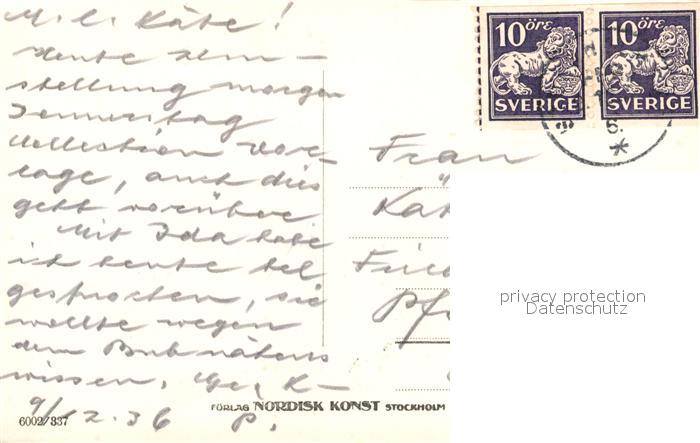 M. l. Käte!
heute
stellung morgen
Donnerstag
Kollection vor-
lage, auch dies
geht vorüber
Mit Ida habe
ich heute tel
gesprochen, sie
wollte wegen
dem Bub näheres
wissen. K-
9/12.36 P.
Frau
Kät
Pf
10 ÖRE
SVERIGE
10 ÖRE
SVERIGE
6.
privacy protection
Datenschutz
6002/837
FÖRLAG NORDISK KONST STOCKHOLM